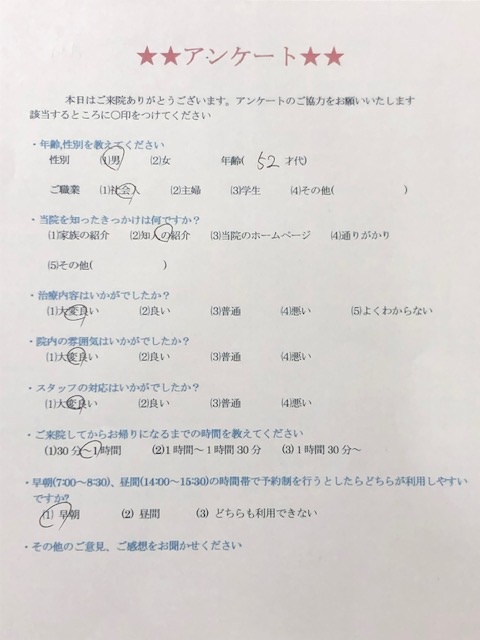 ★★アンケート★★
本日はご来院ありがとうございます。アンケートのご協力をお願いいたします
該当するところに〇印をつけてください
・年齢,性別を教えてください
性別 (1)男 (2)女 年齢( 52 才代)
ご職業 (1)社会人 (2)主婦 (3)学生 (4)その他( )
・当院を知ったきっかけは何ですか?
(1)家族の紹介 (2)知人の紹介 (3)当院のホームページ (4)通りがかり
(5)その他( )
・治療内容はいかがでしたか?
(1)大変良い (2)良い (3)普通 (4)悪い (5)よくわからない
・院内の雰囲気はいかがでしたか?
(1)大変良い (2)良い (3)普通 (4)悪い
・スタッフの対応はいかがでしたか?
(1)大変良い (2)良い (3)普通 (4)悪い
・ご来院してからお帰りになるまでの時間を教えてください
(1)30分～1時間 (2)1時間～1時間30分 (3)1時間30分～
・早朝(7:00～8:30)、昼間(14:00～15:30)の時間帯で予約制を行うとしたらどちらが利用しやすい
ですか?
(1) 早朝 (2) 昼間 (3) どちらも利用できない
・その他のご意見、ご感想をお聞かせください